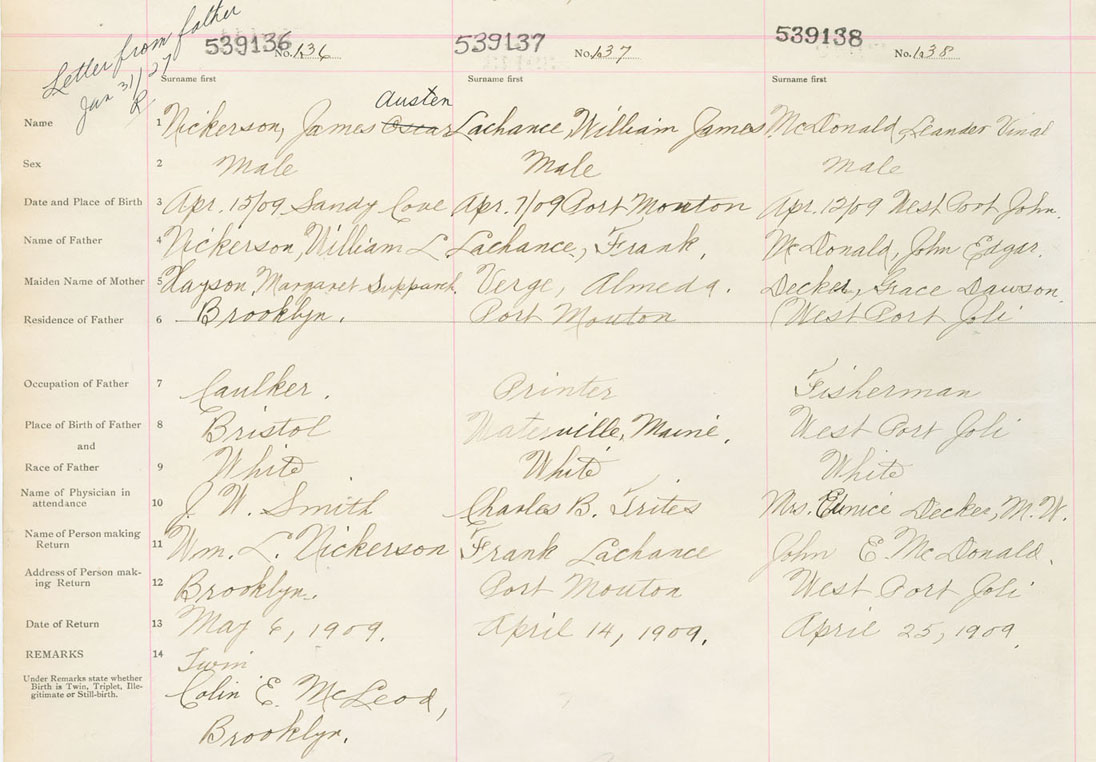 Letter from father
Jan 31/27
R
539136 No. 636 539137 No. 637 539138 No. 638
Surname first Surname first Surname first
Austen
Name 1 Nickerson, James Oscar Lachance, William James McDonald, Leander Vinal
Sex 2 Male Male Male
Date and Place of Birth 3 Apr. 15/09 Sandy Cove Apr. 7/09 Port Mouton Apr. 12/09 West Port John.
Name of Father 4 Nickerson, William L Lachance, Frank, McDonald, John Edgar.
Maiden Name of Mother 5 Margaret Verge, Almeda. Decker, Grace Dawson.
Residence of Father 6 Brooklyn. Port Mouton West Port Joli
Occupation of Father 7 Caulker. Printer Fisherman
Place of Birth of Father 8 Bristol Waterville, Maine. West Port Joli
and
Race of Father 9 White White White
Name of Physician in
attendance 10 J. W. Smith Charles B. Trites Mrs. Eunice Decker, M.W.
Name of Person making
Return 11 Wm. L. Nickerson Frank Lachance John E. McDonald.
Address of Person mak-
ing Return 12 Brooklyn. Port Mouton West Port Joli
Date of Return 13 May 6, 1909. April 14, 1909. April 25, 1909
REMARKS 14 Twin
Under Remarks state whether
Birth is Twin, Triplet, Ille-
gitimate or Still-birth.
Colin E. McLeod,
Brooklyn.